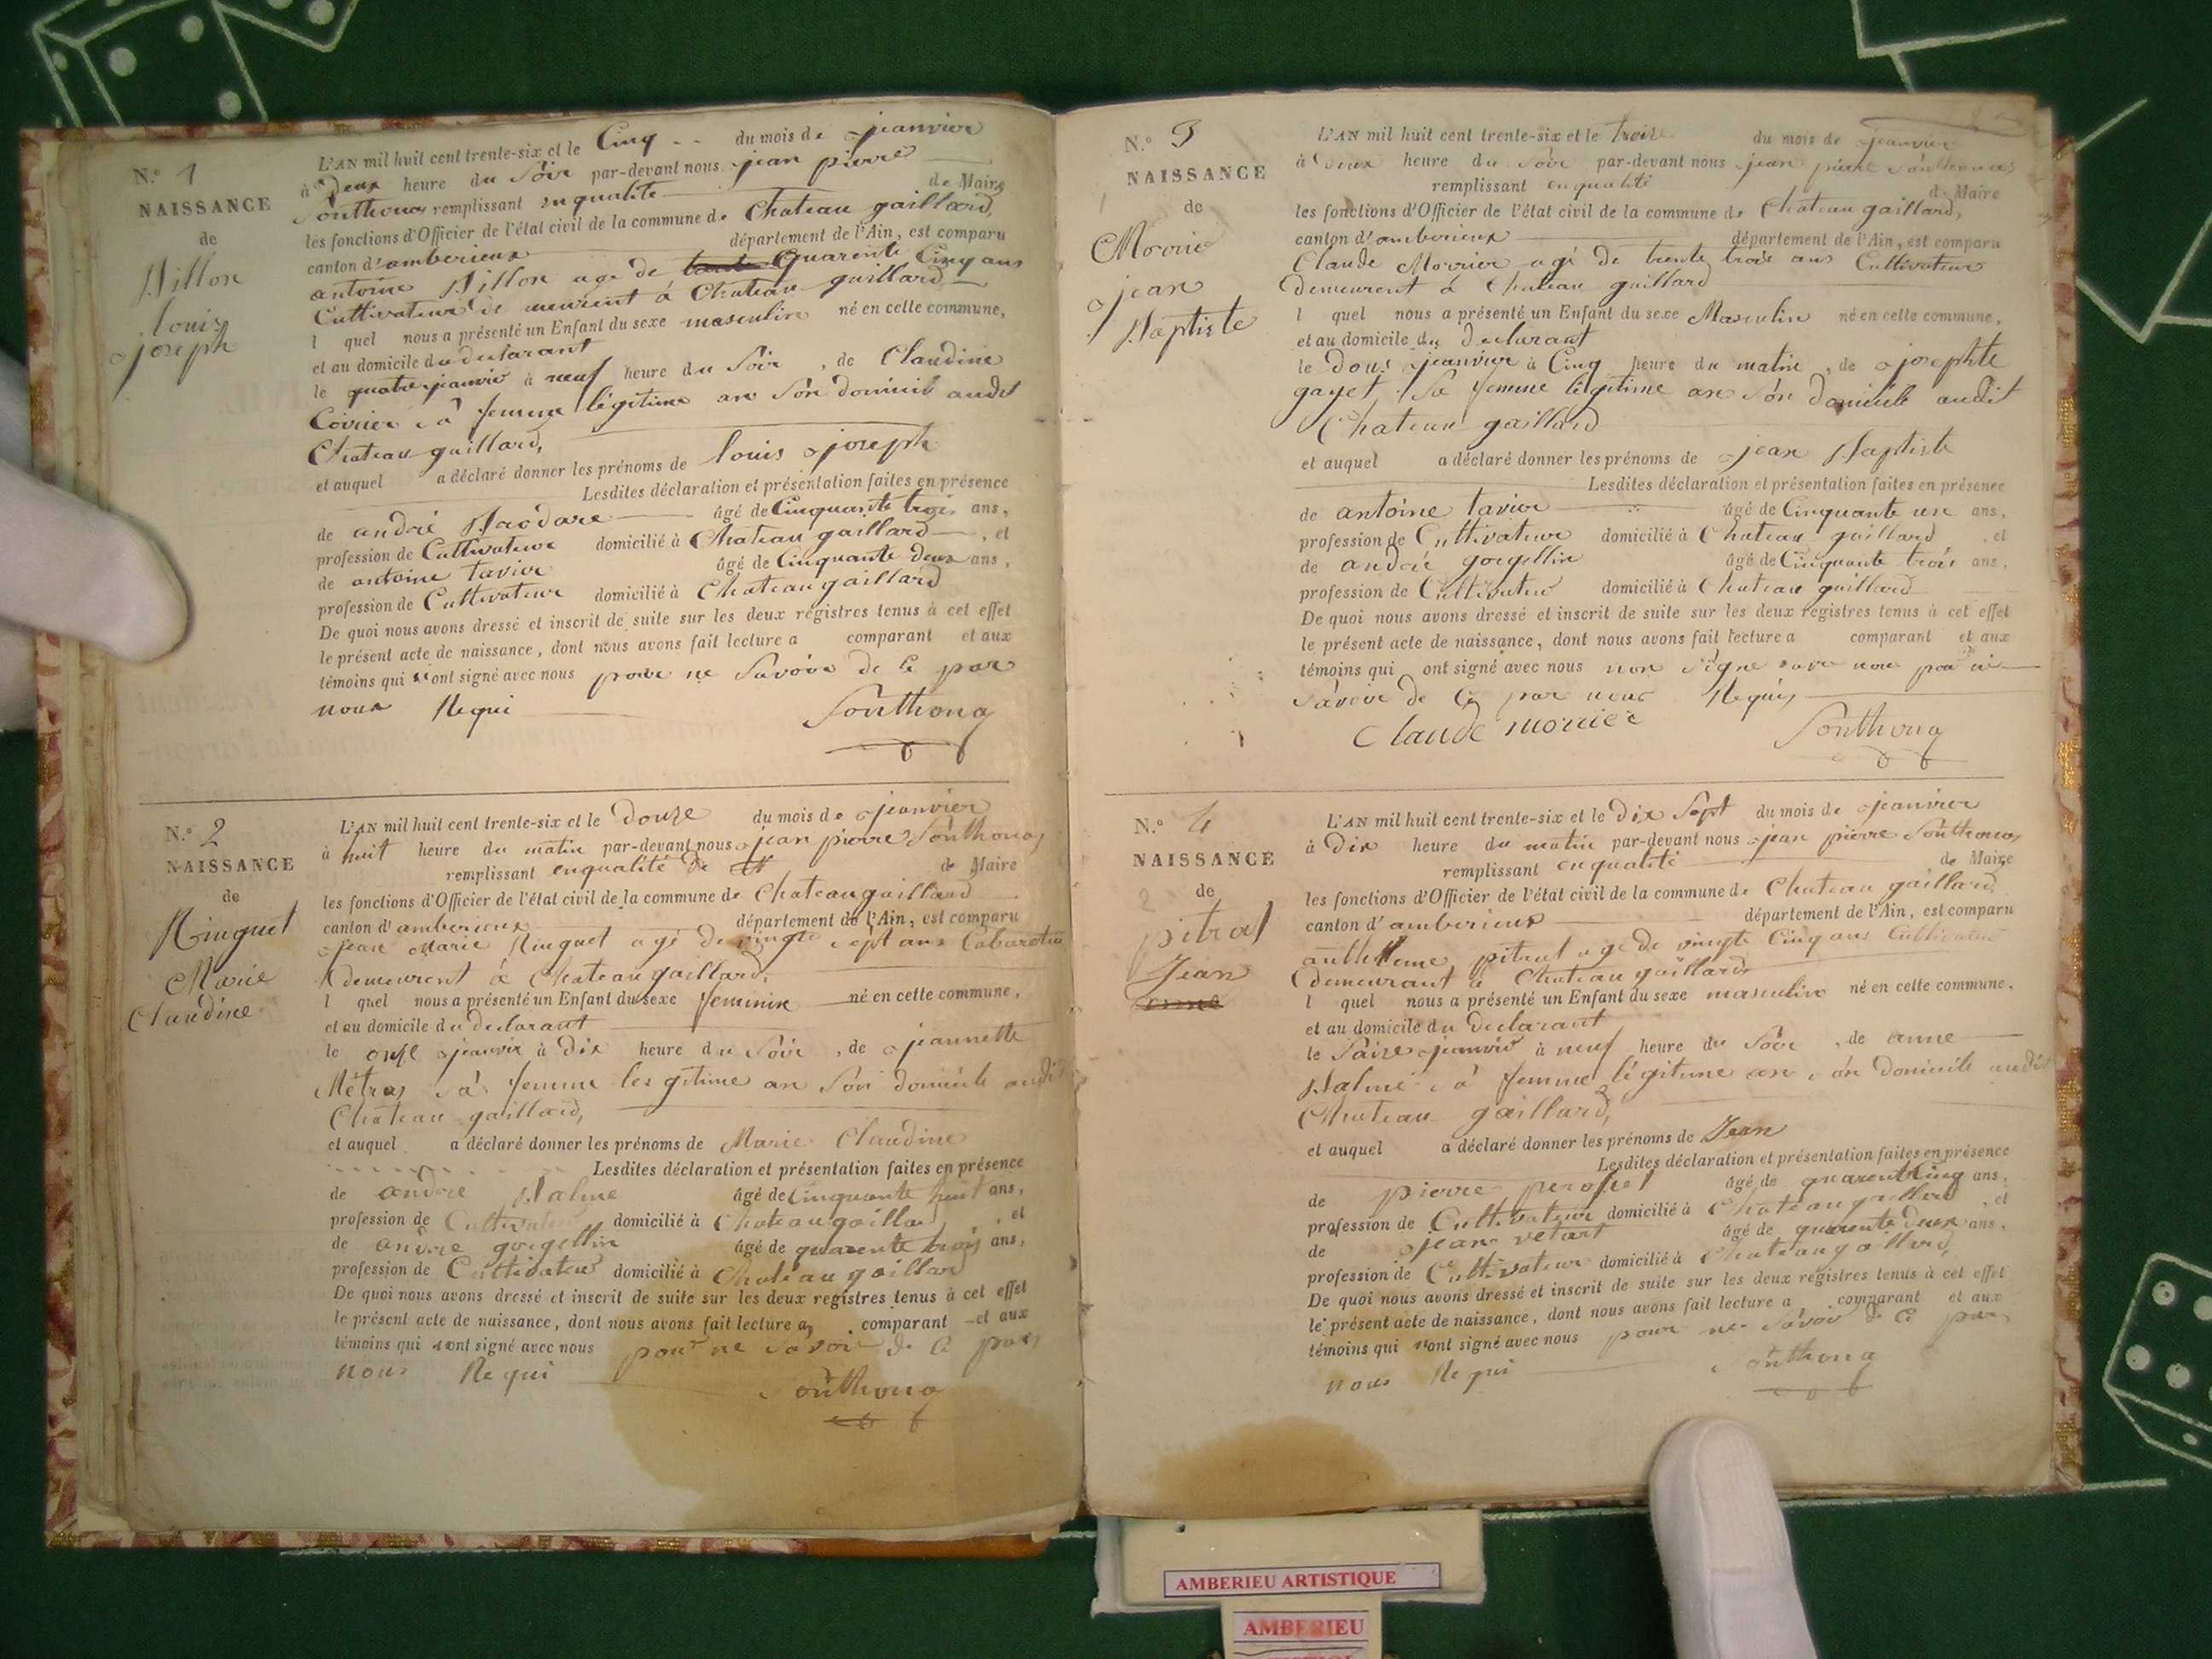 N.º 1
NAISSANCE
de
Billon
louis
joseph
L'AN mil huit cent trente-six et le Cinq du mois de jeanvier
à Deux heure du Soir par-devant nous jean pierre
Sonthonas remplissant enqualité de Maire
les fonctions d'Officier de l'état civil de la commune de Chateau gaillard,
canton d'amberieux département de l'Ain, est comparu
antoine Billon age de Quarente Cinq ans
Cultivateur de meurent á Chateau gaillard
l quel nous a présenté un Enfant du sexe masculin né en cette commune,
et au domicile du declarant
le quatre jeanvié à neuf heure du Soir, de Claudine
Covrier sá femme légitime an Són domicile audit
Chateau gaillard,
et auquel a déclaré donner les prénoms de louis joseph
Lesdites déclaration et présentation faites en présence
de andré âgé de Cinquante trois ans,
profession de Cultivateur domicilié à Chateau gaillard, et
de antoine tavier âgé de Cinquante Deux ans,
profession de Cultivateur domicilié à Chateau gaillard
De quoi nous avons dressé et inscrit de suite sur les deux registres tenus à cet effet
le présent acte de naissance, dont nous avons fait lecture a comparant et aux
témoins qui n'ont signé avec nous pour ne Savoir de Ce par
nous Requi Sonthona
N.º 2
NAISSANCE
de
Ringuet
Marie
Claudine
L'AN mil huit cent trente-six et le Douze du mois de jeanvier
à huit heure du matin par-devant nous jean pierre Sonthonas
remplissant enqualité de de Maire
les fonctions d'Officier de l'état civil de la commune de Chateau gaillard
canton d'amberieux département de l'Ain, est comparu
jean Marie Ringuet agé de vingte sept ans Cabaretier
demeurent á Chateau gaillard,
l quel nous a présenté un Enfant du sexe feminin né en cette commune,
et au domicile du declarant
le onze jeanvié à dix heure du Soir, de jeannette
Métras sá femme les gitime an Són domicile audit
Chateau gaillard,
et auquel a déclaré donner les prénoms de Marie Claudine
Lesdites déclaration et présentation faites en présence
de andré Balme âgé de Cinquante huit ans,
profession de Cultivateur domicilié à Chateau gaillard, et
de andré gorgellin âgé de quarente trois ans,
profession de Cultivateur domicilié à Chateau gaillard
De quoi nous avons dressé et inscrit de suite sur les deux registres tenus à cet effet
le présent acte de naissance, dont nous avons fait lecture a comparant et aux
témoins qui n'ont signé avec nous pour ne Savoir de Ce par
nous Requi
Sonthona
N.º 3
NAISSANCE
de
Morrié
jean
Baptiste
L'AN mil huit cent trente-six et le troize du mois de jeanvier
à Deux heure du Soir par-devant nous jean pierre Sonthonas
remplissant enqualité de Maire
les fonctions d'Officier de l'état civil de la commune de Chateau gaillard,
canton d'amberieux département de l'Ain, est comparu
Claude Morrier agé de trente trois ans Cultivateur
Demeurent á Chateau gaillard
l quel nous a présenté un Enfant du sexe Masculin né en cette commune,
et au domicile du Declarant
le Douz jeanvier à Cinq heure du matin, de josephte
gayet Sa femme légitime an Són Domicile audit
Chateau gaillard
et auquel a déclaré donner les prénoms de jean Baptiste
Lesdites déclaration et présentation faites en présence
de antoine tavier âgé de Cinquante un ans,
profession de Cultivateur domicilié à Chateau gaillard, et
de andré gorgellin âgé de Cinquante trois ans,
profession de Cultivateur domicilié à Chateau gaillard
De quoi nous avons dressé et inscrit de suite sur les deux registres tenus à cet effet
le présent acte de naissance, dont nous avons fait lecture a comparant et aux
témoins qui ont signé avec nous non signe avec nous pour ne
Savoir de Ce par nous Requis
Claude morrier Sonthona
N.º 4
NAISSANCE
de
pitral
Jean
L'AN mil huit cent trente-six et le dix Sept du mois de jeanvier
à dix heure du matin par-devant nous jean pierre Sonthonas
remplissant enqualité de Maire
les fonctions d'Officier de l'état civil de la commune de Chateau gaillard,
canton d'amberieux département de l'Ain, est comparu
anthelme pitral agé de vingte Cinq ans Cultivateur
demeurant á Chateau gaillard
l quel nous a présenté un Enfant du sexe masculin né en cette commune,
et au domicile du declarant
le Saize jeanvié à neuf heure du Soir, de anne
Balme sá femme légitime an són domicile audit
Chateau gaillard,
et auquel a déclaré donner les prénoms de Jean
Lesdites déclaration et présentation faites en présence
de pierre âgé de quarente Cinq ans,
profession de Cultivateur domicilié à Chateau gaillard, et
de jean âgé de quarente deux ans,
profession de Cultivateur domicilié à Chateau gaillard,
De quoi nous avons dressé et inscrit de suite sur les deux registres tenus à cet effet
le présent acte de naissance, dont nous avons fait lecture a comparant et aux
témoins qui n'ont signé avec nous pour ne Savoir de Ce par
nous Requi
Sonthona
AMBERIEU ARTISTIQUE
AMBERIEU